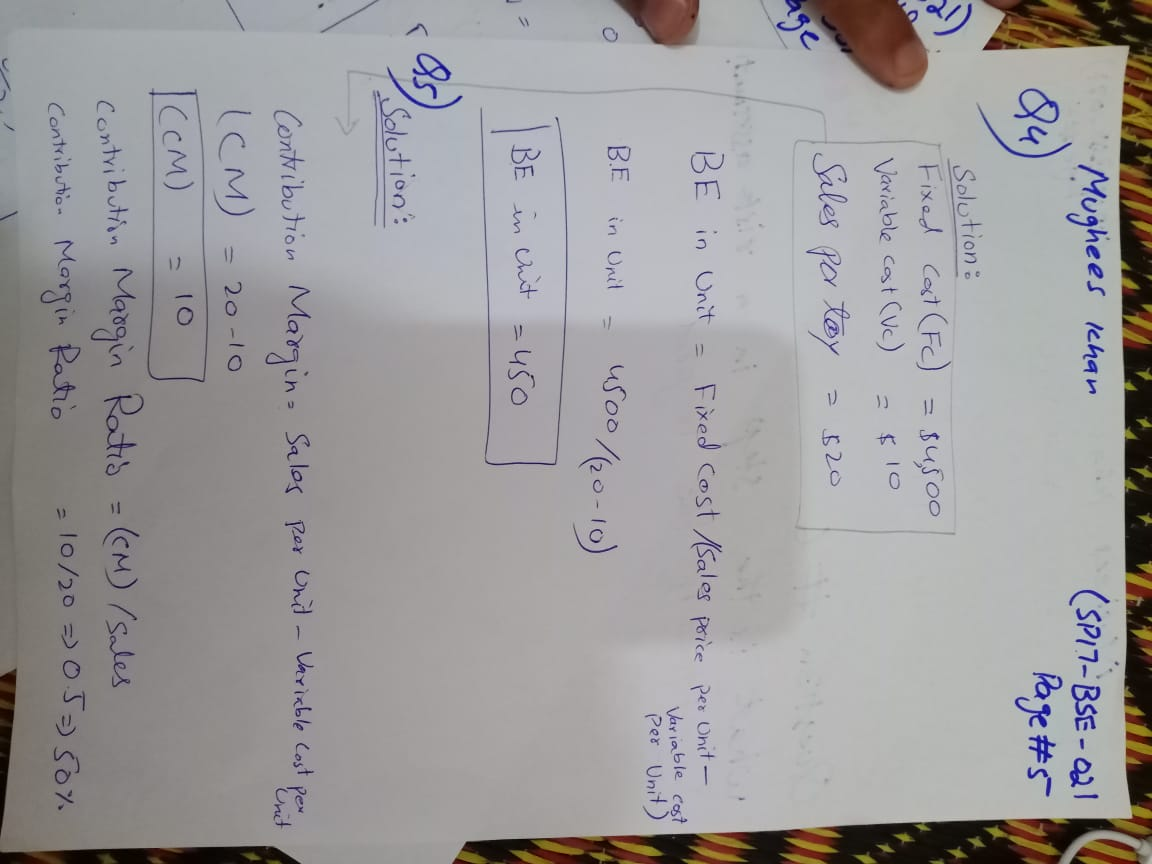 Mughees Khan (SP17-BSE-021
Page#5
Q4)
Solution:
Fixed Cost (FC) = $4,500
Variable Cost (VC) = $ 10
Sales per toy = $20
BE in Unit = Fixed Cost /(Sales price per Unit -
Variable cost
per Unit)
BE in Unit = 4500/(20-10)
BE in Unit = 450
Q5)
Solution:
Contribution Margin = Sales per Unit - Variable Cost per
Unit
(CM) = 20-10
(CM) = 10
Contribution Margin Ratio = (CM) / Sales
Contribution Margin Ratio = 10/20 => 0.5 => 50%